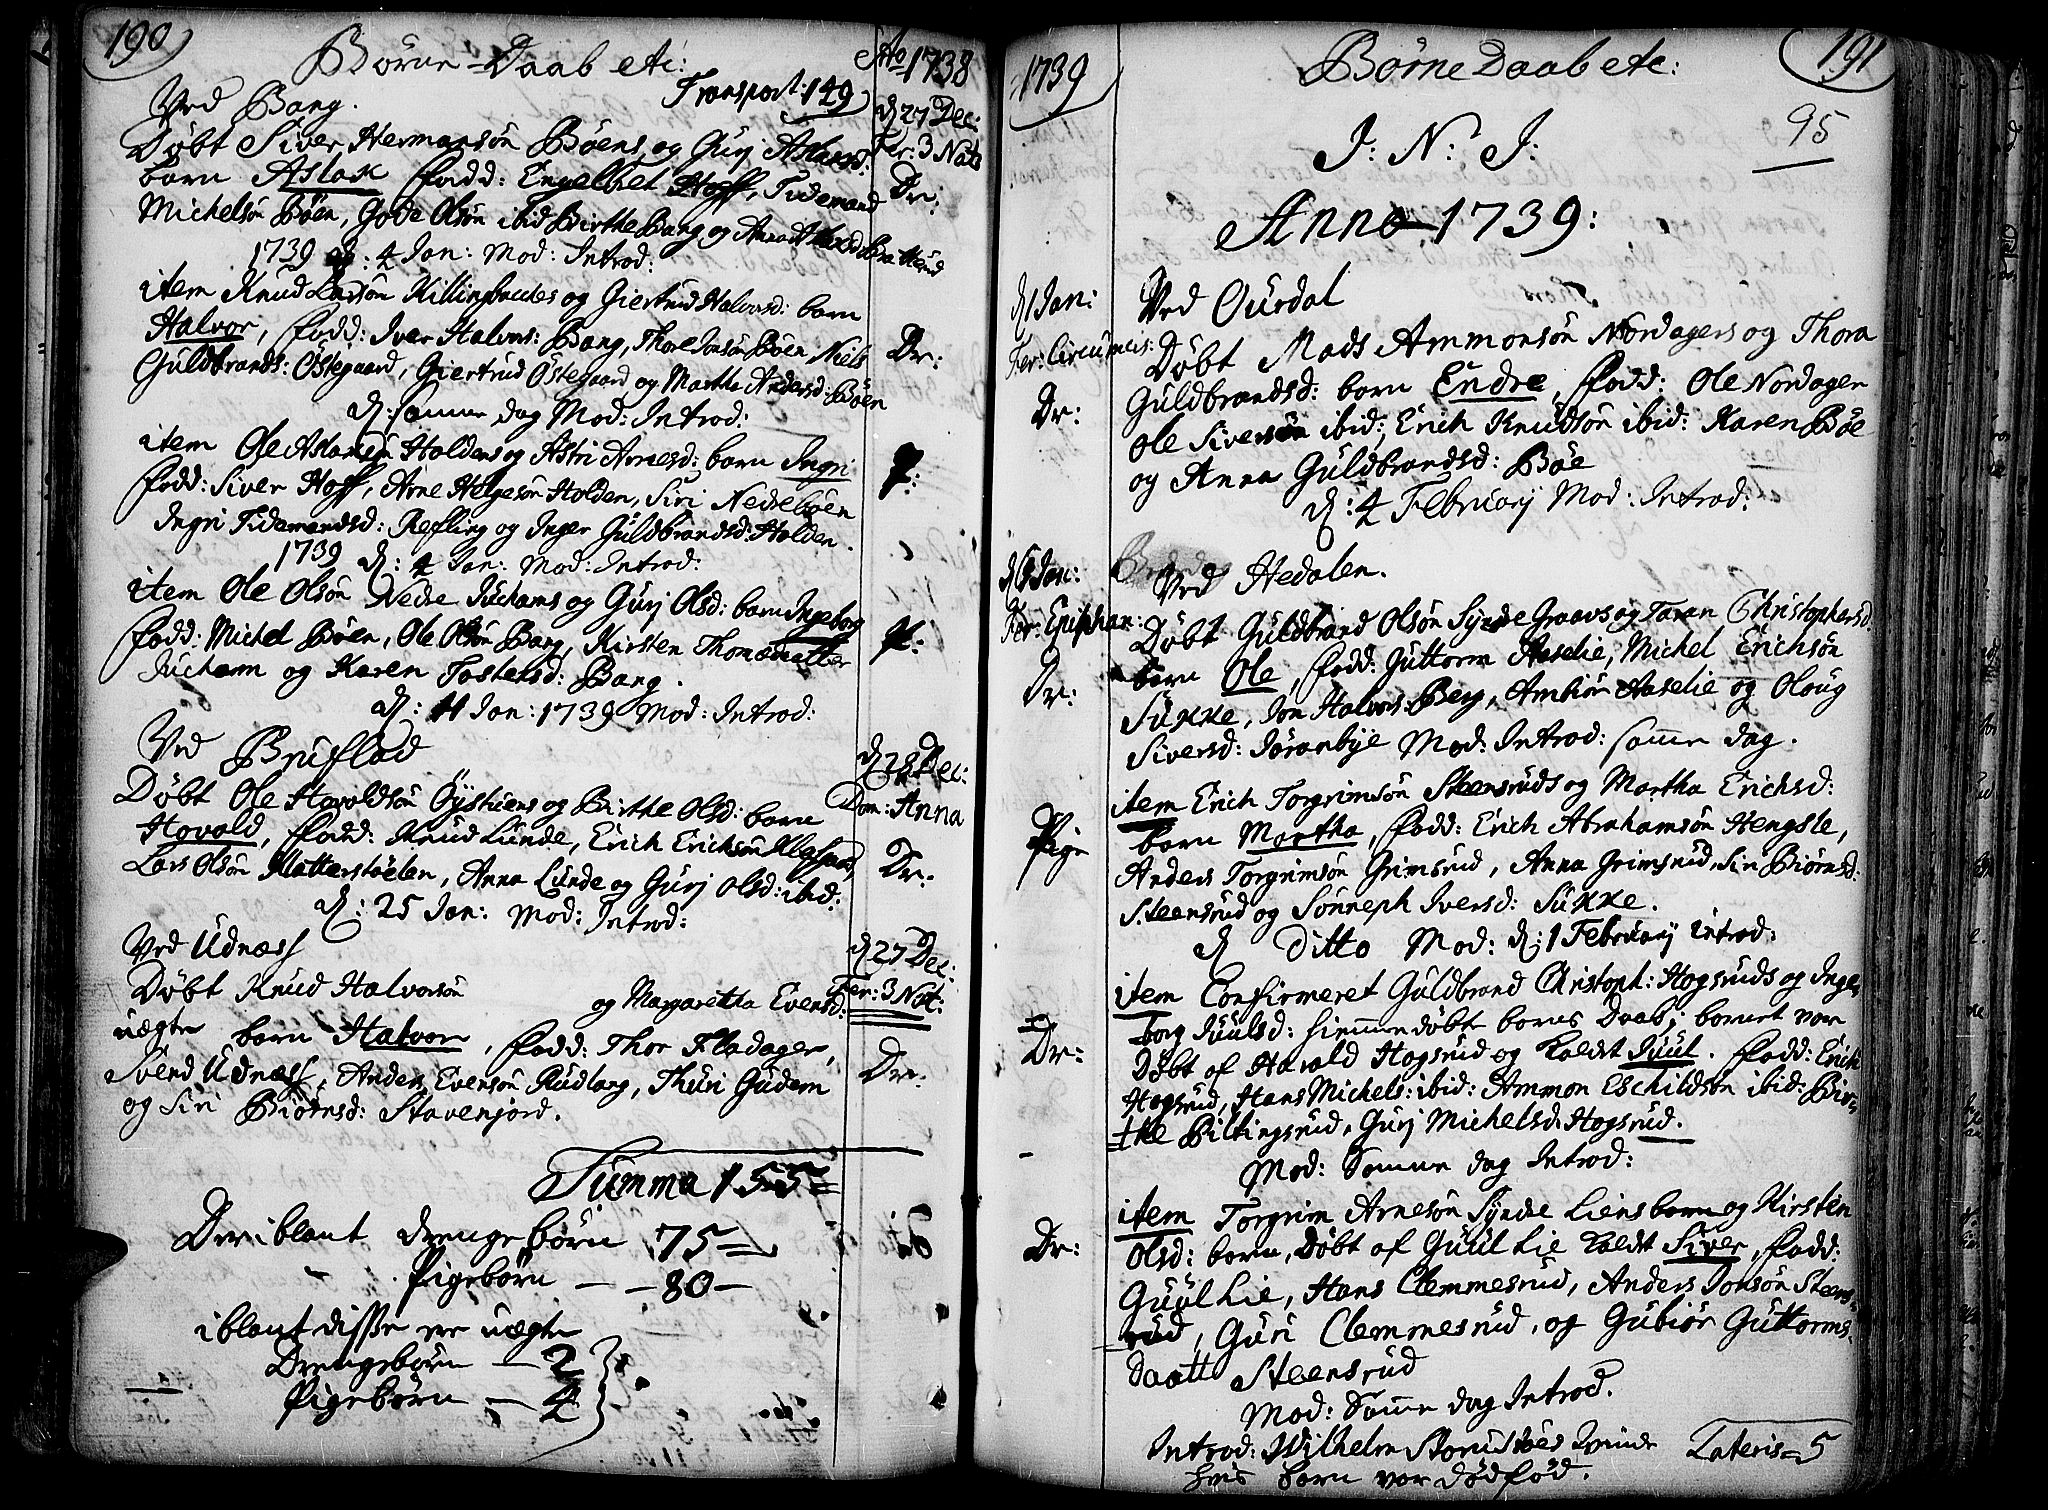 190
Børne-Daab etc:
Ao 1738
Transport: 149
Ved Bang.
d 27 Dec:
Fer: 3 Nat:
Døbt Siver Hermansøn Bøens og Gurj Aslaksd:
Dr:
barn Aslak, fadd: Engelbret Hoff, Tidemand
Michelsøn Bøen, Gode Olsøn ibid Birthe Bang og Anna
1739 d: 4 Jan: Mod: Introd:
item Knud Larsøn Killingbakkes og Giertrud Halvorsd: barn
Halvor, fadd: Iver Halvors: Bang, Thore Jonsøn Bøen, Niels
Dr:
Guldbrands: Østegaard, Giertrud Østegaard og Martha Andersd: Bøen
d: samme dag Mod: Introd:
item Ole Aslaksøn Holdens og Astri Arnesd: barn Ingri
P:
fadd: Siver Hoff, Arne Helgesøn Holden, Siri Nedrebøen
Ingri Tidemandsd: Refling og Inger Guldbrandsd: Holden.
1739 d: 4 Jan: Mod: Introd:
item Ole Olsøn Nedre Juchams og Gurj Olsd: barn Ingeborg
P:
fadd: Michel Bøen, Ole Olsøn Bang, Kirsten Thomedatter
Jucham og Karen Tostensd: Bang.
d: 11 Jan: 1739 Mod: Introd:
Ved Bruflad
d 28 Dec:
Dom: Anna
Døbt Ole Hovoldsøn Øystuens og Birthe Olsd: barn
Hovald, fadd: Knud Lunde, Erich Erichsøn
Dr:
Lars Olsøn Klatterstøelen, Anna Lunde og Gurj Olsd: ibid:
d: 25 Jan: Mod: Introd:
Ved Udnæss
d 27 Dec:
Fer: 3 Nat:
Døbt Knud Halvorsøn og Margaretta Evensd:
uægte barn Halvor, fadd: Thor Fladager,
Dr:
Svend Udnæss, Anders Evensøn Rudlang, Thuri Gudem
og Siri Biørnsd: Stavenjord.
Summa 155
Deriblant drengebørn 75
Pigebørn - - 80 -
iblant disse er uægte
Drengebørn - 2
Pigebørn - 4
1739
Børne Daab etc:
191
95
J: N: J:
Anno 1739:
d 1 Jan:
Fer: Circumcis:
Ved Ourdal
Døbt Mads Ammonsøn Nordagers og Thora
Dr:
Guldbrandsd: barn Endre, fadd: Ole Nordager
Ole Siversøn ibid: Erich Knudsøn ibid: Karen Bøe
og Anna Guldbrandsd: Bøe
d: 4 Februarj Mod: Introd:
d 6 Jan:
Fer: Epiphan:
Ved Hedalen.
Døbt Guldbrand Olsøn Syndre Graavs og Taran Christophersd:
Dr:
barn Ole, fadd: Guttorm Aaselie, Michel Erichsøn
Sukke, Jon Halvors: Berg, Ambiør Aaselie og Oloug
Siversd: Jøranbye Mod: Introd: samme dag.
item Erich Torgrimsøn Steensruds og Martha Erichsd:
Pige
barn Martha, fadd: Erich Abrahamsøn Hengsle,
Anders Torgrimsøn Grimsrud, Anna Grimsrud, Siri Biørnsd:
Steensrud og Sønneph Iversd: Sukke.
d ditto Mod: d: 1 Februarij introd:
item Confirmeret Guldbrand Christoph: Hogsruds og Inge-
borg Juulsd: hiemmedøbte barns Daab; barnet var
Dr:
Døbt af Havald Hogsrud og kaldt Juul. fadd: Erich
Hogsrud, Hans Michels: ibid: Ammon Eschildsøn ibid: Bir-
the Piltingsrud, Gurj Michelsd: Hogsrud.
Mod: Samme dag Introd:
item Torgrim Arnesøn Syndre Liens barn og Kirsten
Dr:
Olsd: barn, Døbt af Guul Lie kaldt Siver, fadd:
Guul Lie, Hans Clemmesrud, Anders Jonsøn Steens-
rud, Guri Clemmesrud, og Gubiør Guttorms-
daatt Steensrud
Mod: Samme dag Introd.
Introd: Wilhelm Qvinde
hvis barn var dødfød.
Lateris = 5